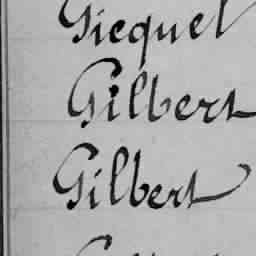 Gicquel
Gilbert
Gilbert